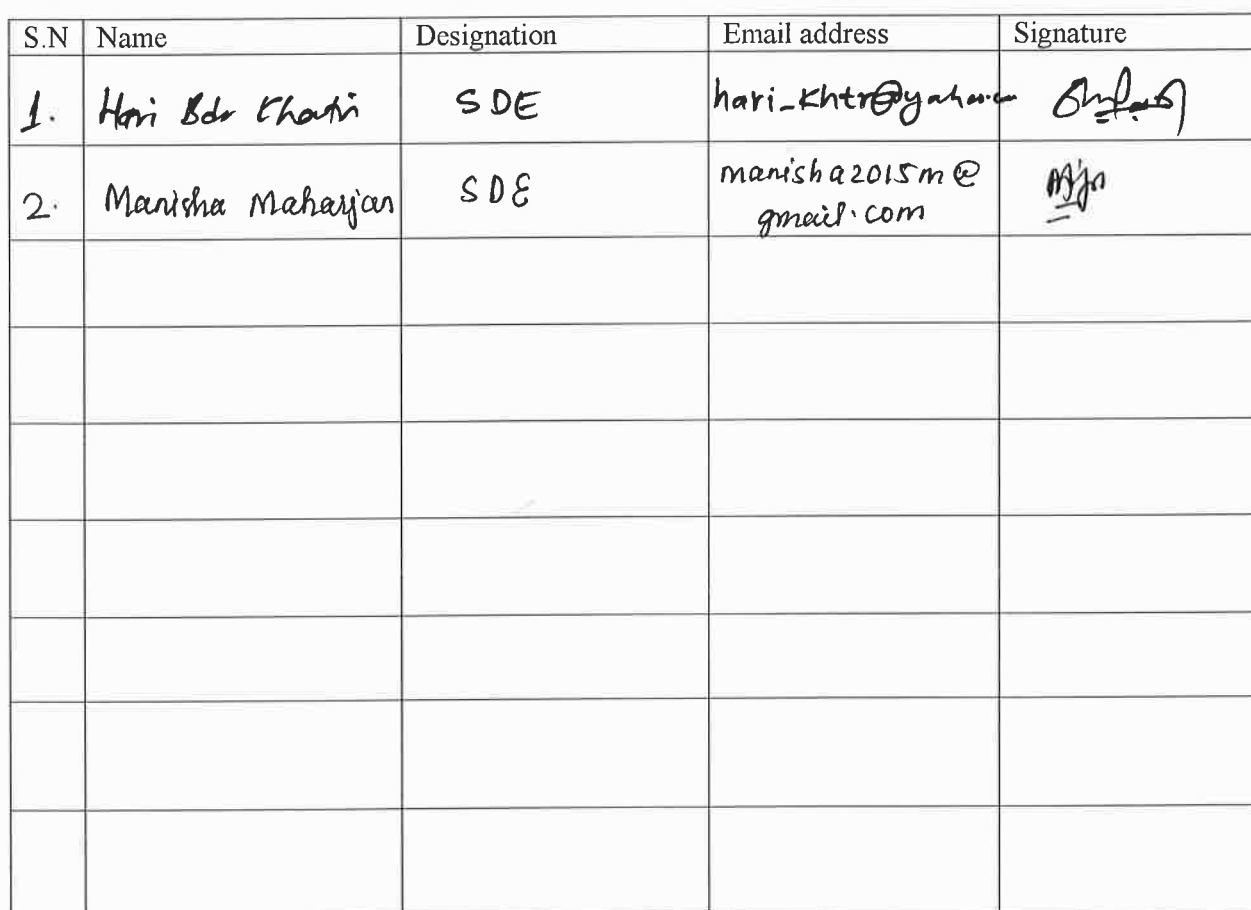 S.N Name Designation Email address Signature
1. Hari Bdr Khatri SDE hari_khtr@yahoo.com
2. Manisha Maharjan SDE manisha2015m@
gmail.com